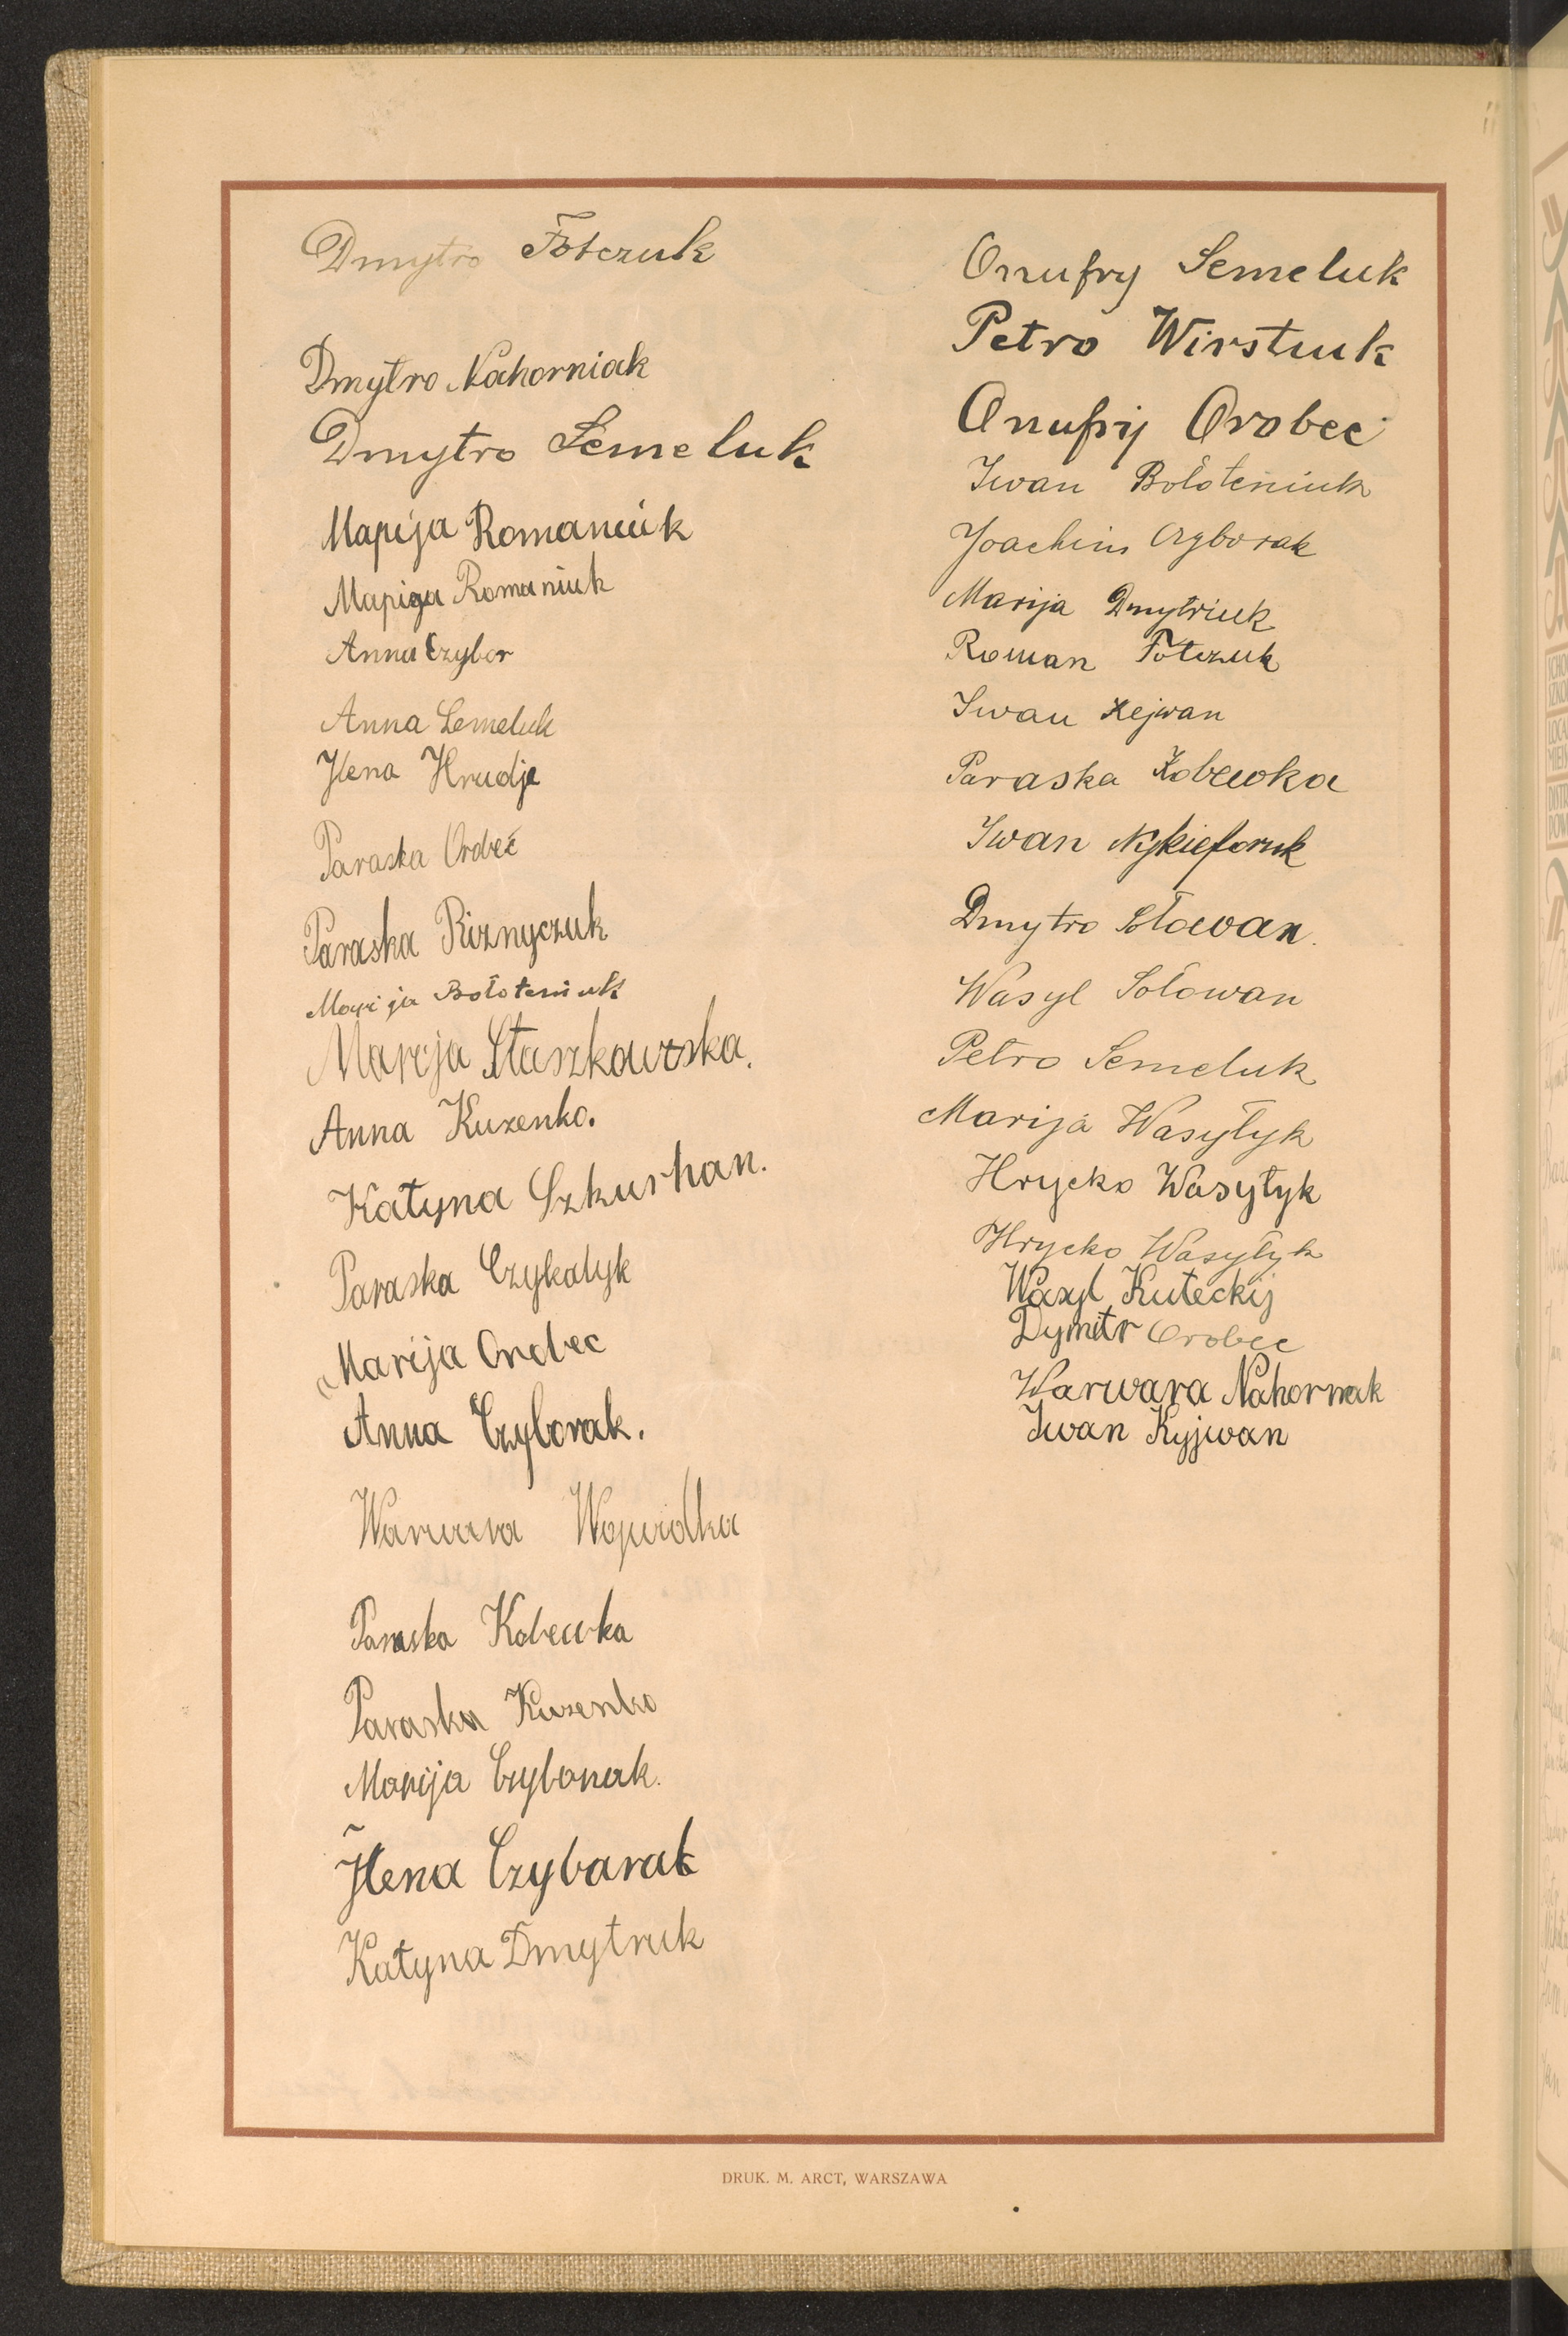 Dmytro Fotczuk
Dmytro Nahorniak
Dmytro Semeluk
Mapija Romaniuk
Mapiga Romaniuk
Anna Czybor
Anna Semeluk
Ilena Hrudje
Paraska Orobeć
Paraska Riznyczuk
Marija Bołoteniuk
Marija Staszkowska.
Anna Kuzenko.
Katyna Szkurhan.
Paraska Czykalyk
Marija Orobec
Anna Czyborak.
Warwara
Paraska Kobewka
Paraska Kuzenko
Marija Czyborak.
Ilena Czybarak
Katyna Dmytruk
Onufry Semeluk
Petro Wirstiuk
Onufrij Orobec
Iwan Bołoteniuk
Joachim Czyborak
Marija Dmytriuk
Roman Fotczuk
Iwan Kejwan
Paraska Kobewka
Iwan Nykieforuk
Dmytro Sołowan.
Wasyl Sołowan
Petro Semeluk
Marija Wasyłyk
Hrycko Wasyłyk
Hrycko Wasyłyk
Wasyl Kuteckij
Dymitr Orobec
Warwara Nahorniak
Iwan Kyjwan
DRUK. M. ARCT, WARSZAWA